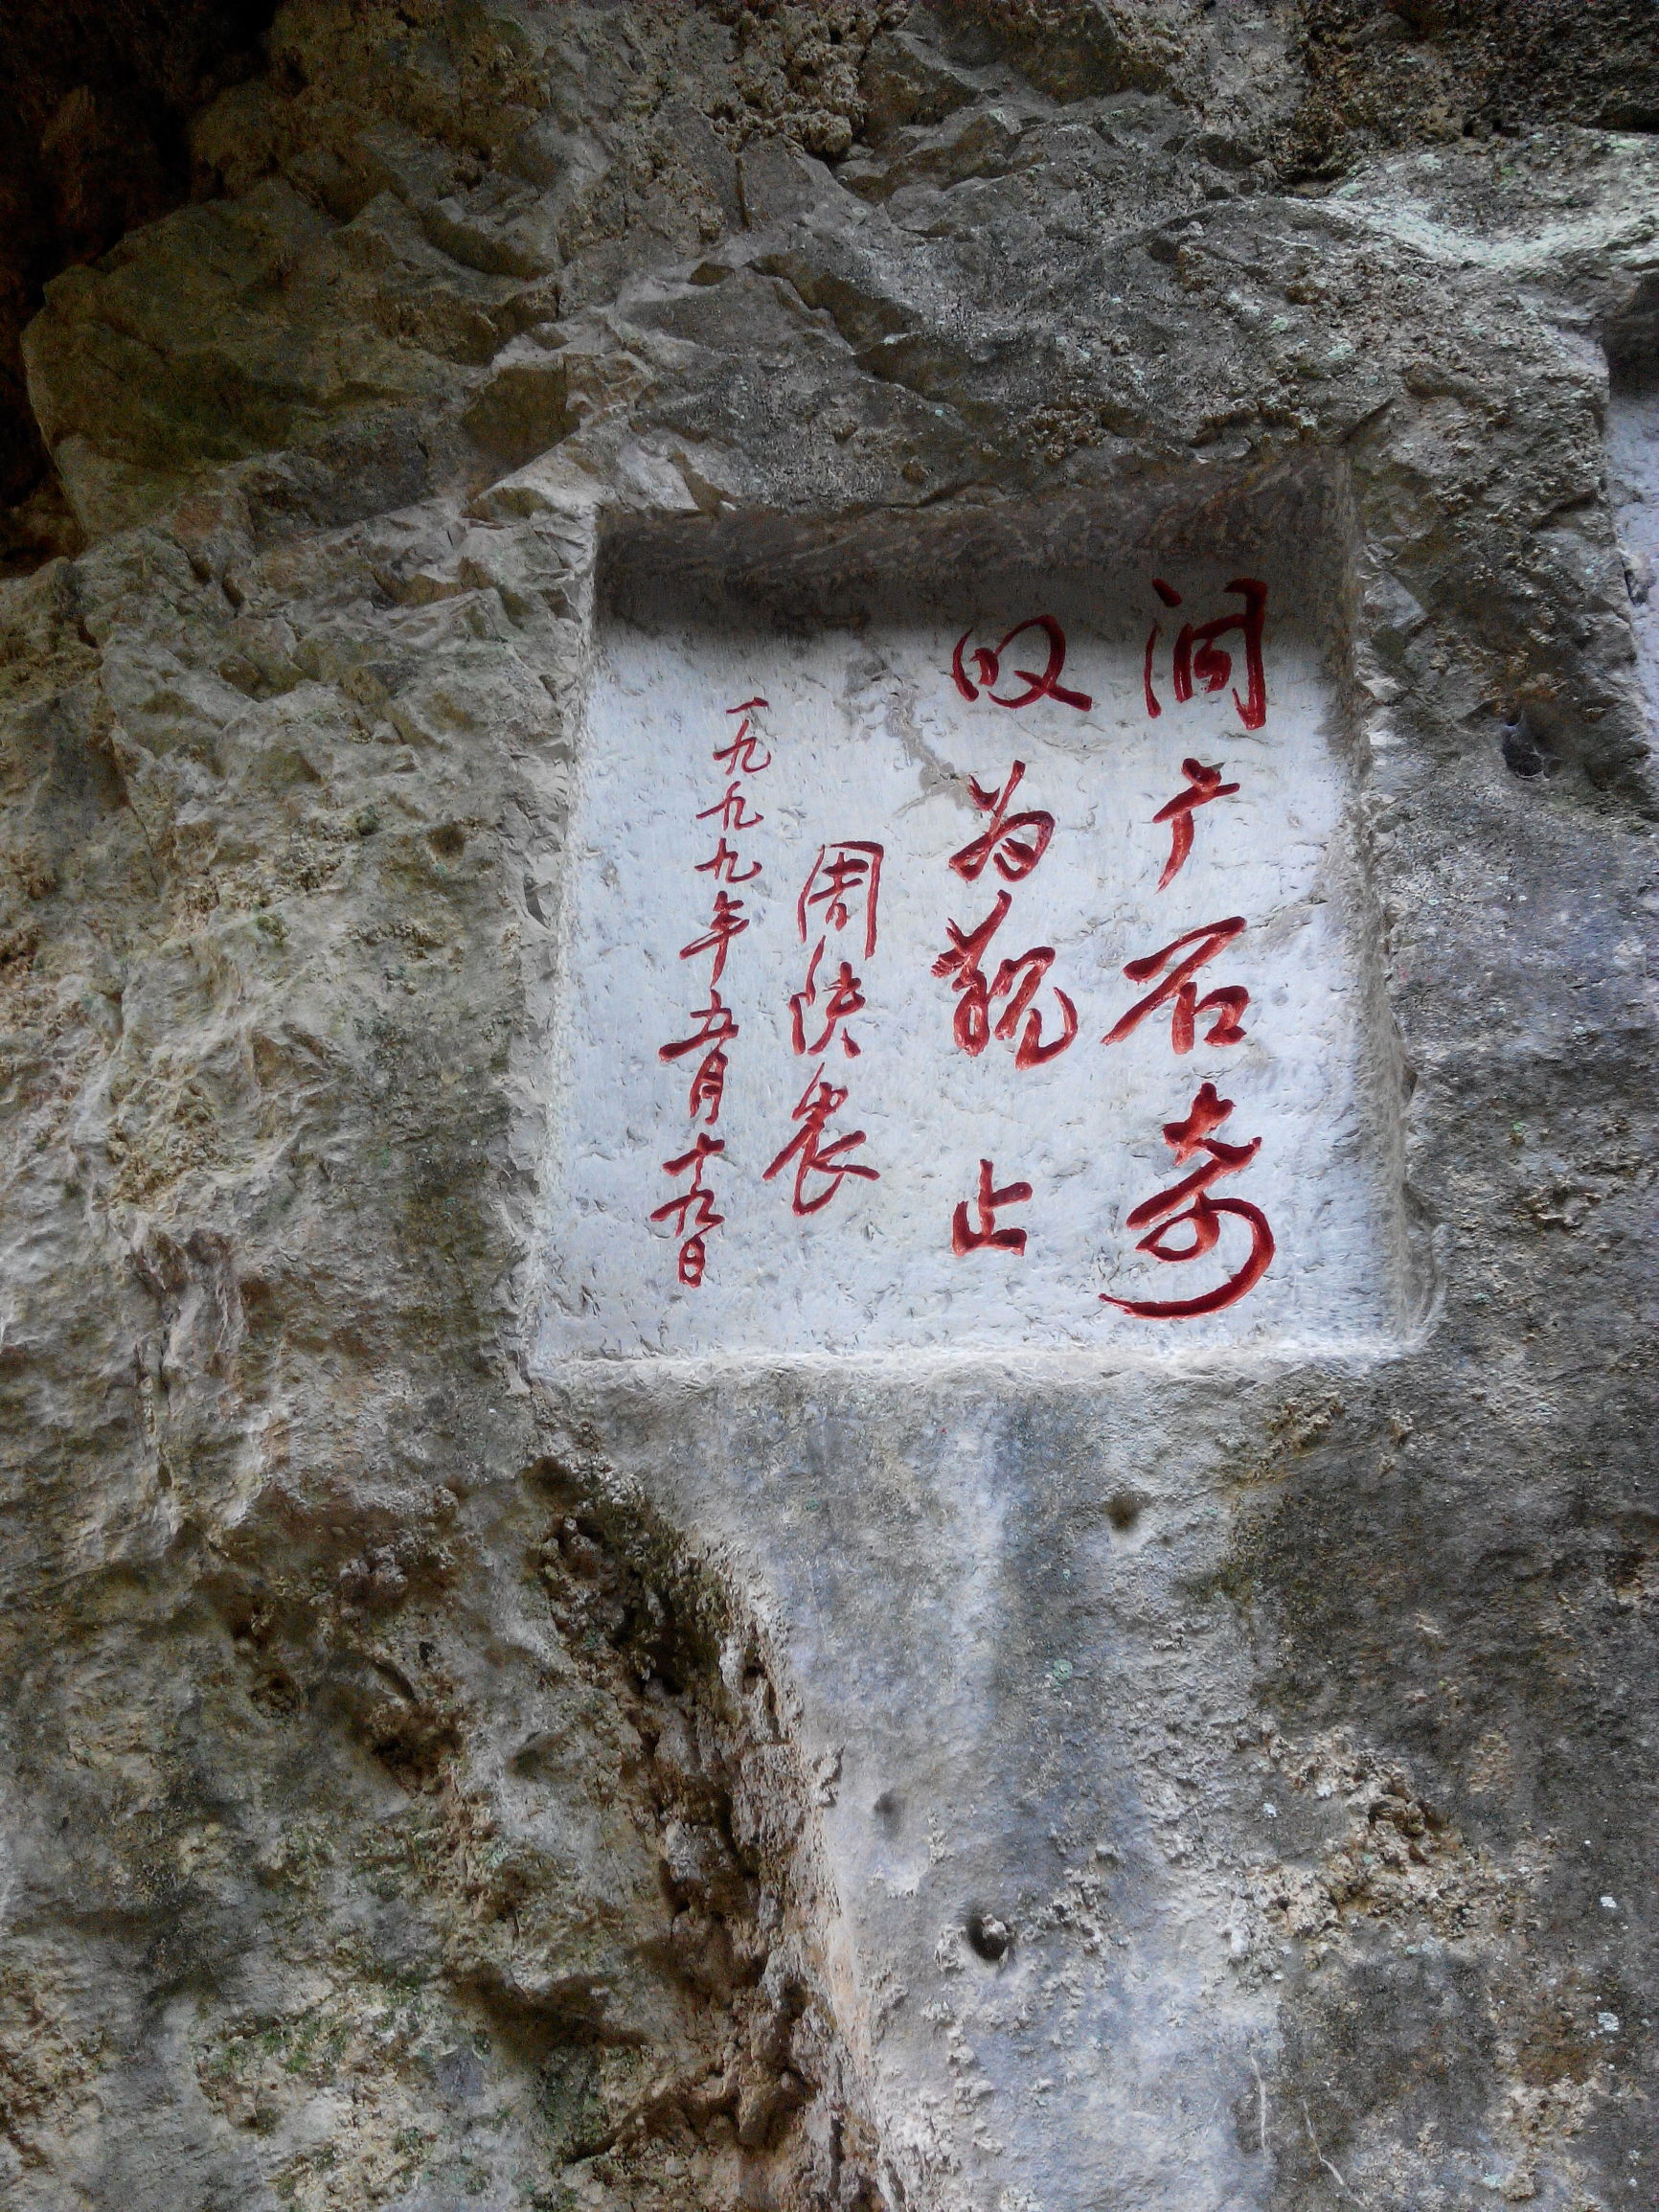 洞广石奇
叹为观止
周铁农
一九九九年五月十九日